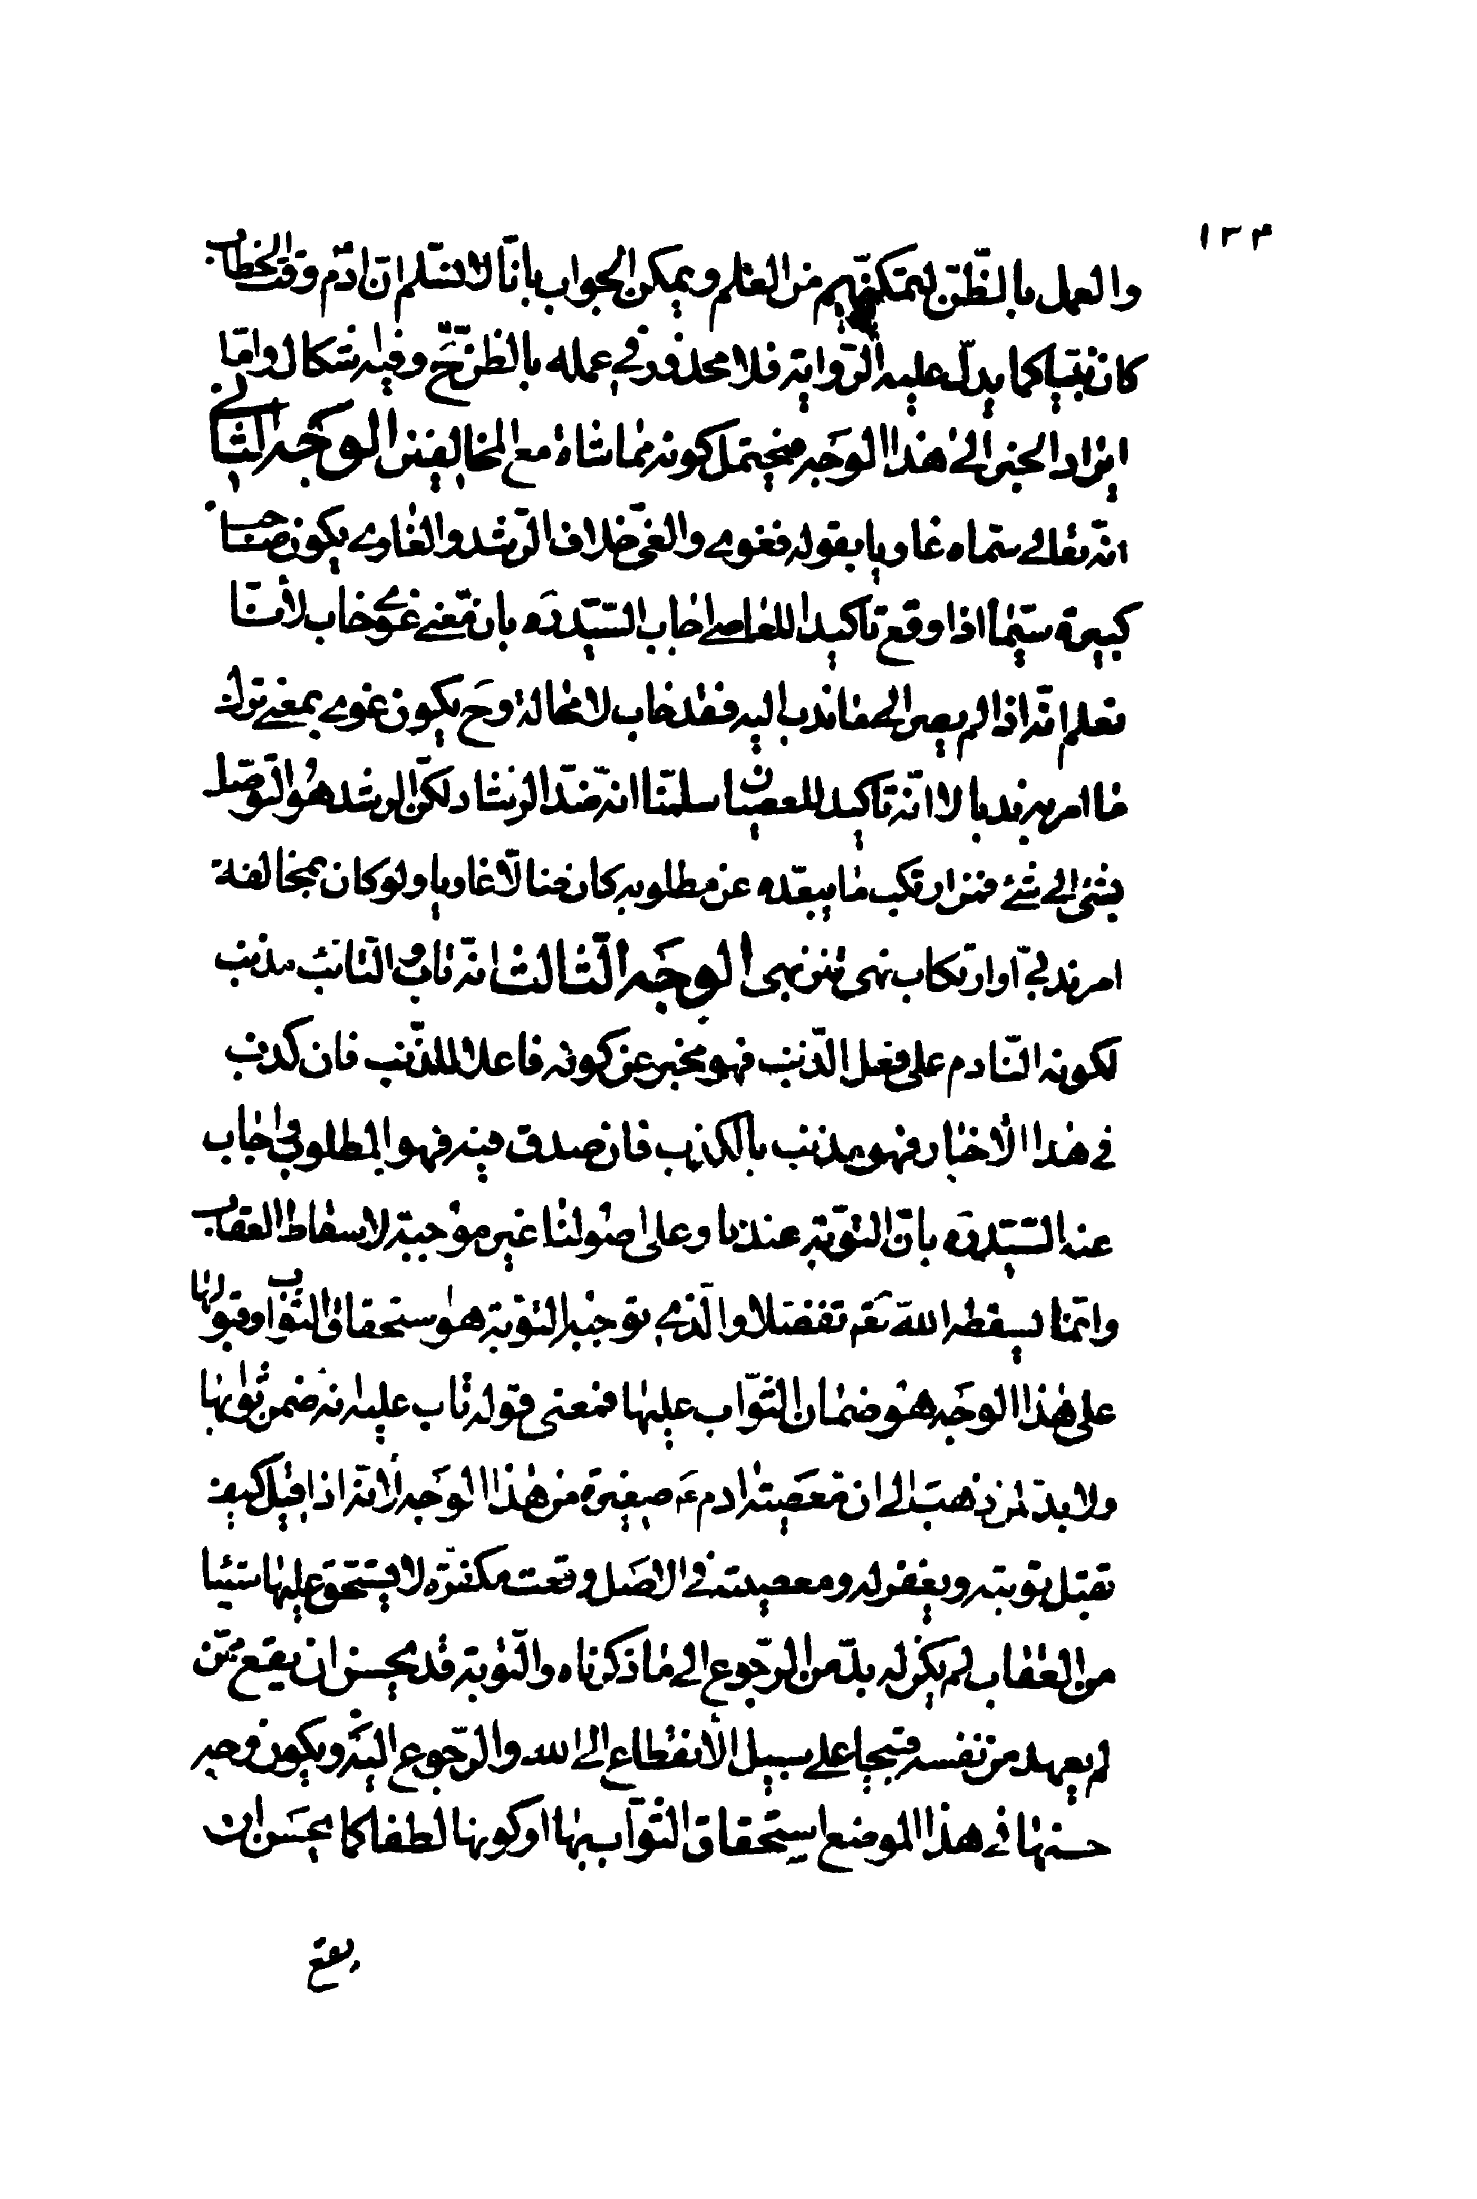 ١٣٤
والعمل بالظّن لتمكنهم من العلم ويمكن الجواب بانّا لا نسلم ان ادم وقت الخطاب
كان نبيّا كما يدلّ عليه الرّواية فلا محذور في عمله بالظنّ ح وفيه شكال وامّا
ايراد الخبر الى هذا الوجه فيحتمل كونه مماشاة مع المخالفين الوجه الثاني
انّه تعالى سمّاه غاويا بقوله فغوى والغىّ خلاف الرّشد والغاوى يكون صاحب
كبيرة سيّما اذا وقع تاكيدا للعاصى اجاب السّيّد ره بان معنى غوى خاب لأنّا
نعلم انّه اذا لم يصر الى ما ندب اليه فقد خاب لا محالة وح يكون غوى بمعنى ترك
ما امر به ندبا لا انّه تاكيد للعصيان سلمنا انه ضدّ الرشاد لكن الرشد هو التوصّل
بشئ الى شئ فمن ارتكب ما يبعّده عن مطلوبه كان ضالّا غاويا ولو كان بمخالفة
امر ندبىّ او ارتكاب نهى تنزيهى الوجه الثّالث انّه تاب والتّائب مذنب
لكونه النّادم على فعل الذّنب فهو مخبر عن كونه فاعلا للذّنب فان كذب
في هذا الأخبار فهو مذنب بالكذب فان صدق فيه فهو المطلوب واجاب
عنه السّيّد ره بانّ التّوبة عندنا وعلى اصولنا غير موجبة لاسقاط العقاب
وانّما يسقطه الله تعم تفضلا والّذى توجبه التوبة هو ستحقاق الثّواب وقبولها
على هذا الوجه هو ضمان الثّواب عليها فمعنى قوله تاب عليه انه ضمن ثوابها
ولا بدّ لمن ذهب الى ان معصية ادم ع صغيرة من هذا الوجه لأنّه اذا قيل كيف
تقبل توبته ويغفر له ومعصيته في الاصل وقعت مكفّرة لا يستحق عليها شيئا
من العقاب لم يكن له بدّ من الرّجوع الى ما ذكرناه والتّوبة قد يحسن ان يقع ممّن
لم يعهد من نفسه قبيحا على سبيل الأنقطاع الى الله والرّجوع اليه ويكون وجه
حسنها في هذا الموضع استحقاق الثّواب بها او كونها لطفا كما يحسن ان
يقع